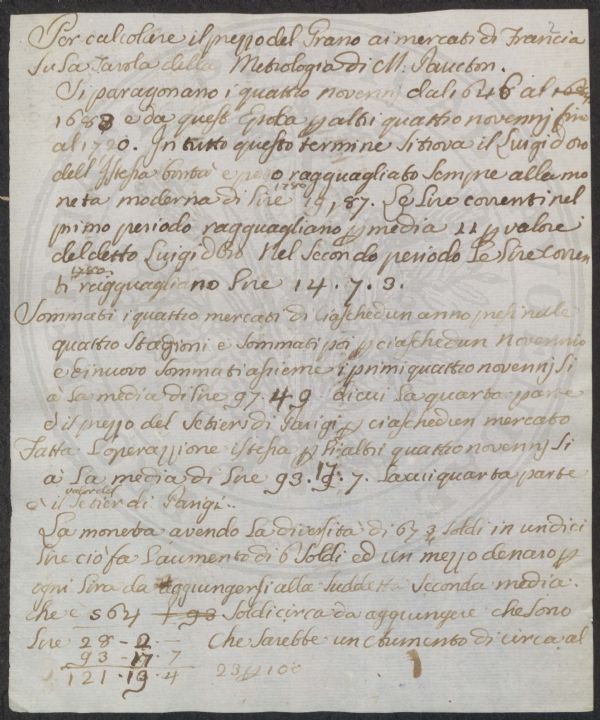 2
Per calcolare il prezzo del Grano ai mercati di Francia
su la Tavola della Metrologia di M. Paucton.
Si paragonano i quattro novennj dal 1646 al
1683 e da quest Epoka p altri quattro novennj fino
al 1720. In tutto questo termine si trova il Luigi d'oro
dell'istessa bontà e peso ragguagliato sempre alla mo
neta moderna di lire 1780 19,87. Le lire correnti nel
primo periodo ragguagliano p media 11 p valore
del detto Luigi d'oro Nel secondo periodo le lire corren
ti 1780 ragguagliano lire 14.7.3.
Sommati i quattro mercati di ciaschedun anno presi nelle
quattro stagioni e sommati poi p ciaschedun novennio
e di nuovo sommati assieme i primi quattro novennj si
à la media di lire 97.49 di cui la quarta parte
è il prezzo del Setier di Parigi p ciaschedun mercato
Fatta l'operazzione istessa p li altri quattro novennj si
à la media di lire 93.17.7. la cui quarta parte
è il valor del Setier di Parigi..
La moneta avendo la diversità di 67 3 soldi in undici
lire ciò fa l'aumento di 6 soldi ed un mezzo denaro p
ogni lira da aggiungersi alla suddetta seconda media.
che è 564 + 98 soldi circa da aggiungere che sono
lire 28-2-- Che sarebbe un aumento di circa al
93-17.7 23 p 100
121.19.4